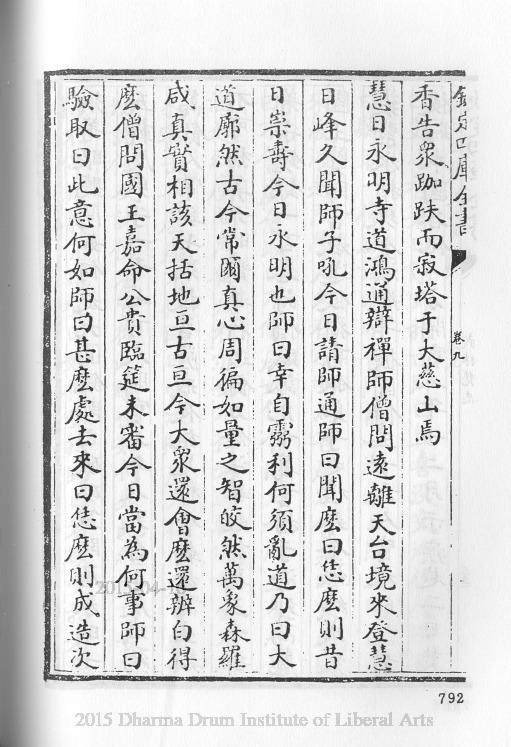 欽定四庫全書
卷九
香告衆跏趺而寂塔于大慈山焉
慧日永明寺道鴻通辯禪師僧問遠離天台境來登慧
日峰久聞師子吼今日請師通師曰聞麽曰恁麽則昔
日崇壽今日永明也師曰幸自靈利何須亂道乃曰大
道廓然古今常爾真心周徧如量之智皎然萬象森羅
咸真實相該天括地亘古亘今大衆還會麽還辨白得
麽僧問國王嘉命公貴臨筵未審今日當為何事師曰
驗取曰此意何如師曰甚麽處去來曰恁麽則成造次
792
2015 Dharma Drum Institute of Liberal Arts